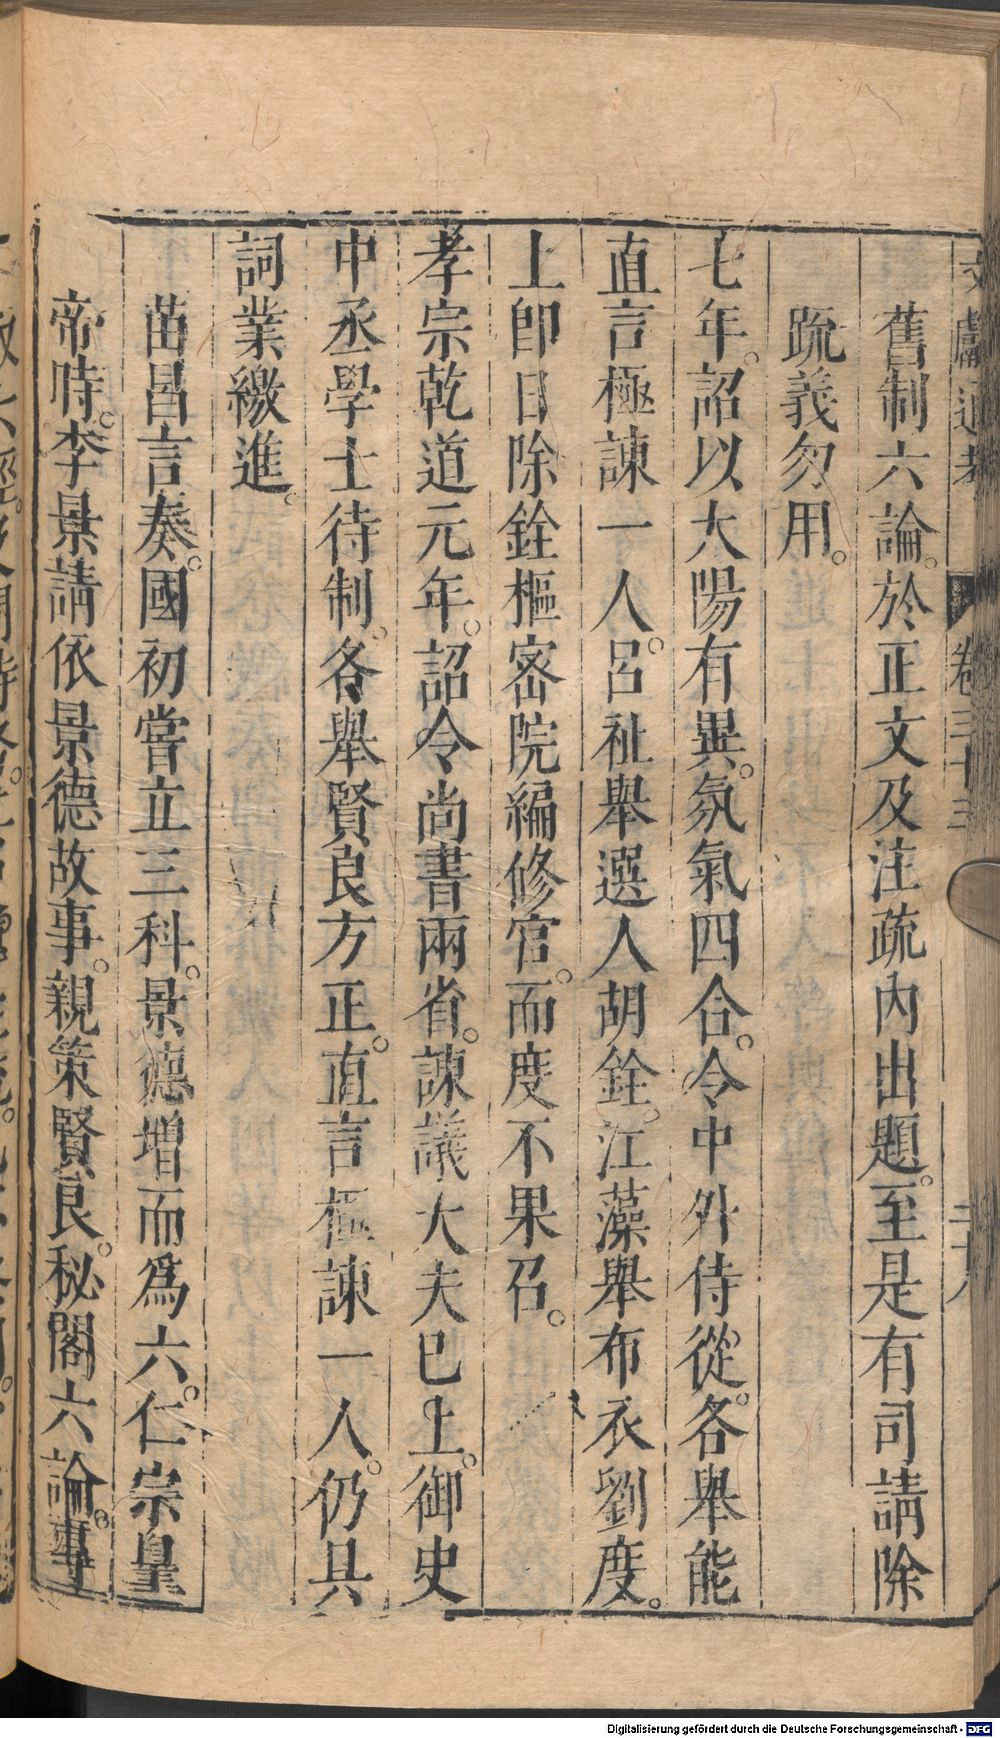 文獻通考 卷三十三 二十八
舊制六論。於正文及注疏內出題。至是有司請除
疏義勿用。
七年。詔以大陽有異。氛氣四合。令中外侍從。各舉能
直言極諫一人。呂祉舉選人胡銓。江藻舉布衣劉度。
上即日除銓樞密院編修官。而度不果召。
孝宗乾道元年。詔令尚書兩省。諫議大夫已上。御史
中丞學士待制。各舉賢良方正。直言極諫一人。仍具
詞業繳進。
苗昌言奏。國初嘗立三科。景德增而爲六。仁宗皇
帝時。李景請依景德故事。親策賢良。秘閣六論。專
Digitalisierung gefördert durch die Deutsche Forschungsgemeinschaft - DFG